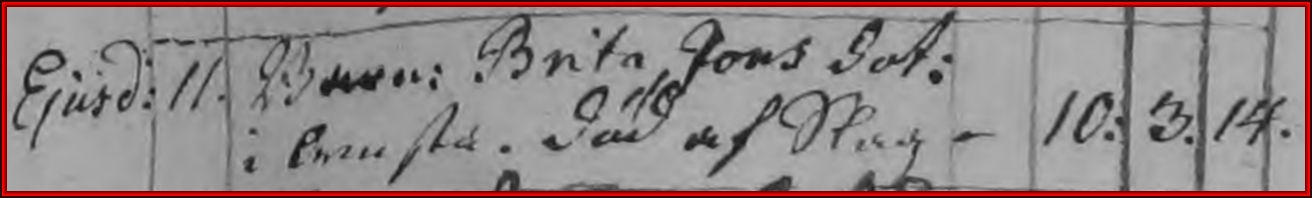 Ejusd: 11. Barn: Brita Jons dot:
i Lensta. död af Slag - 10: 3. 14.